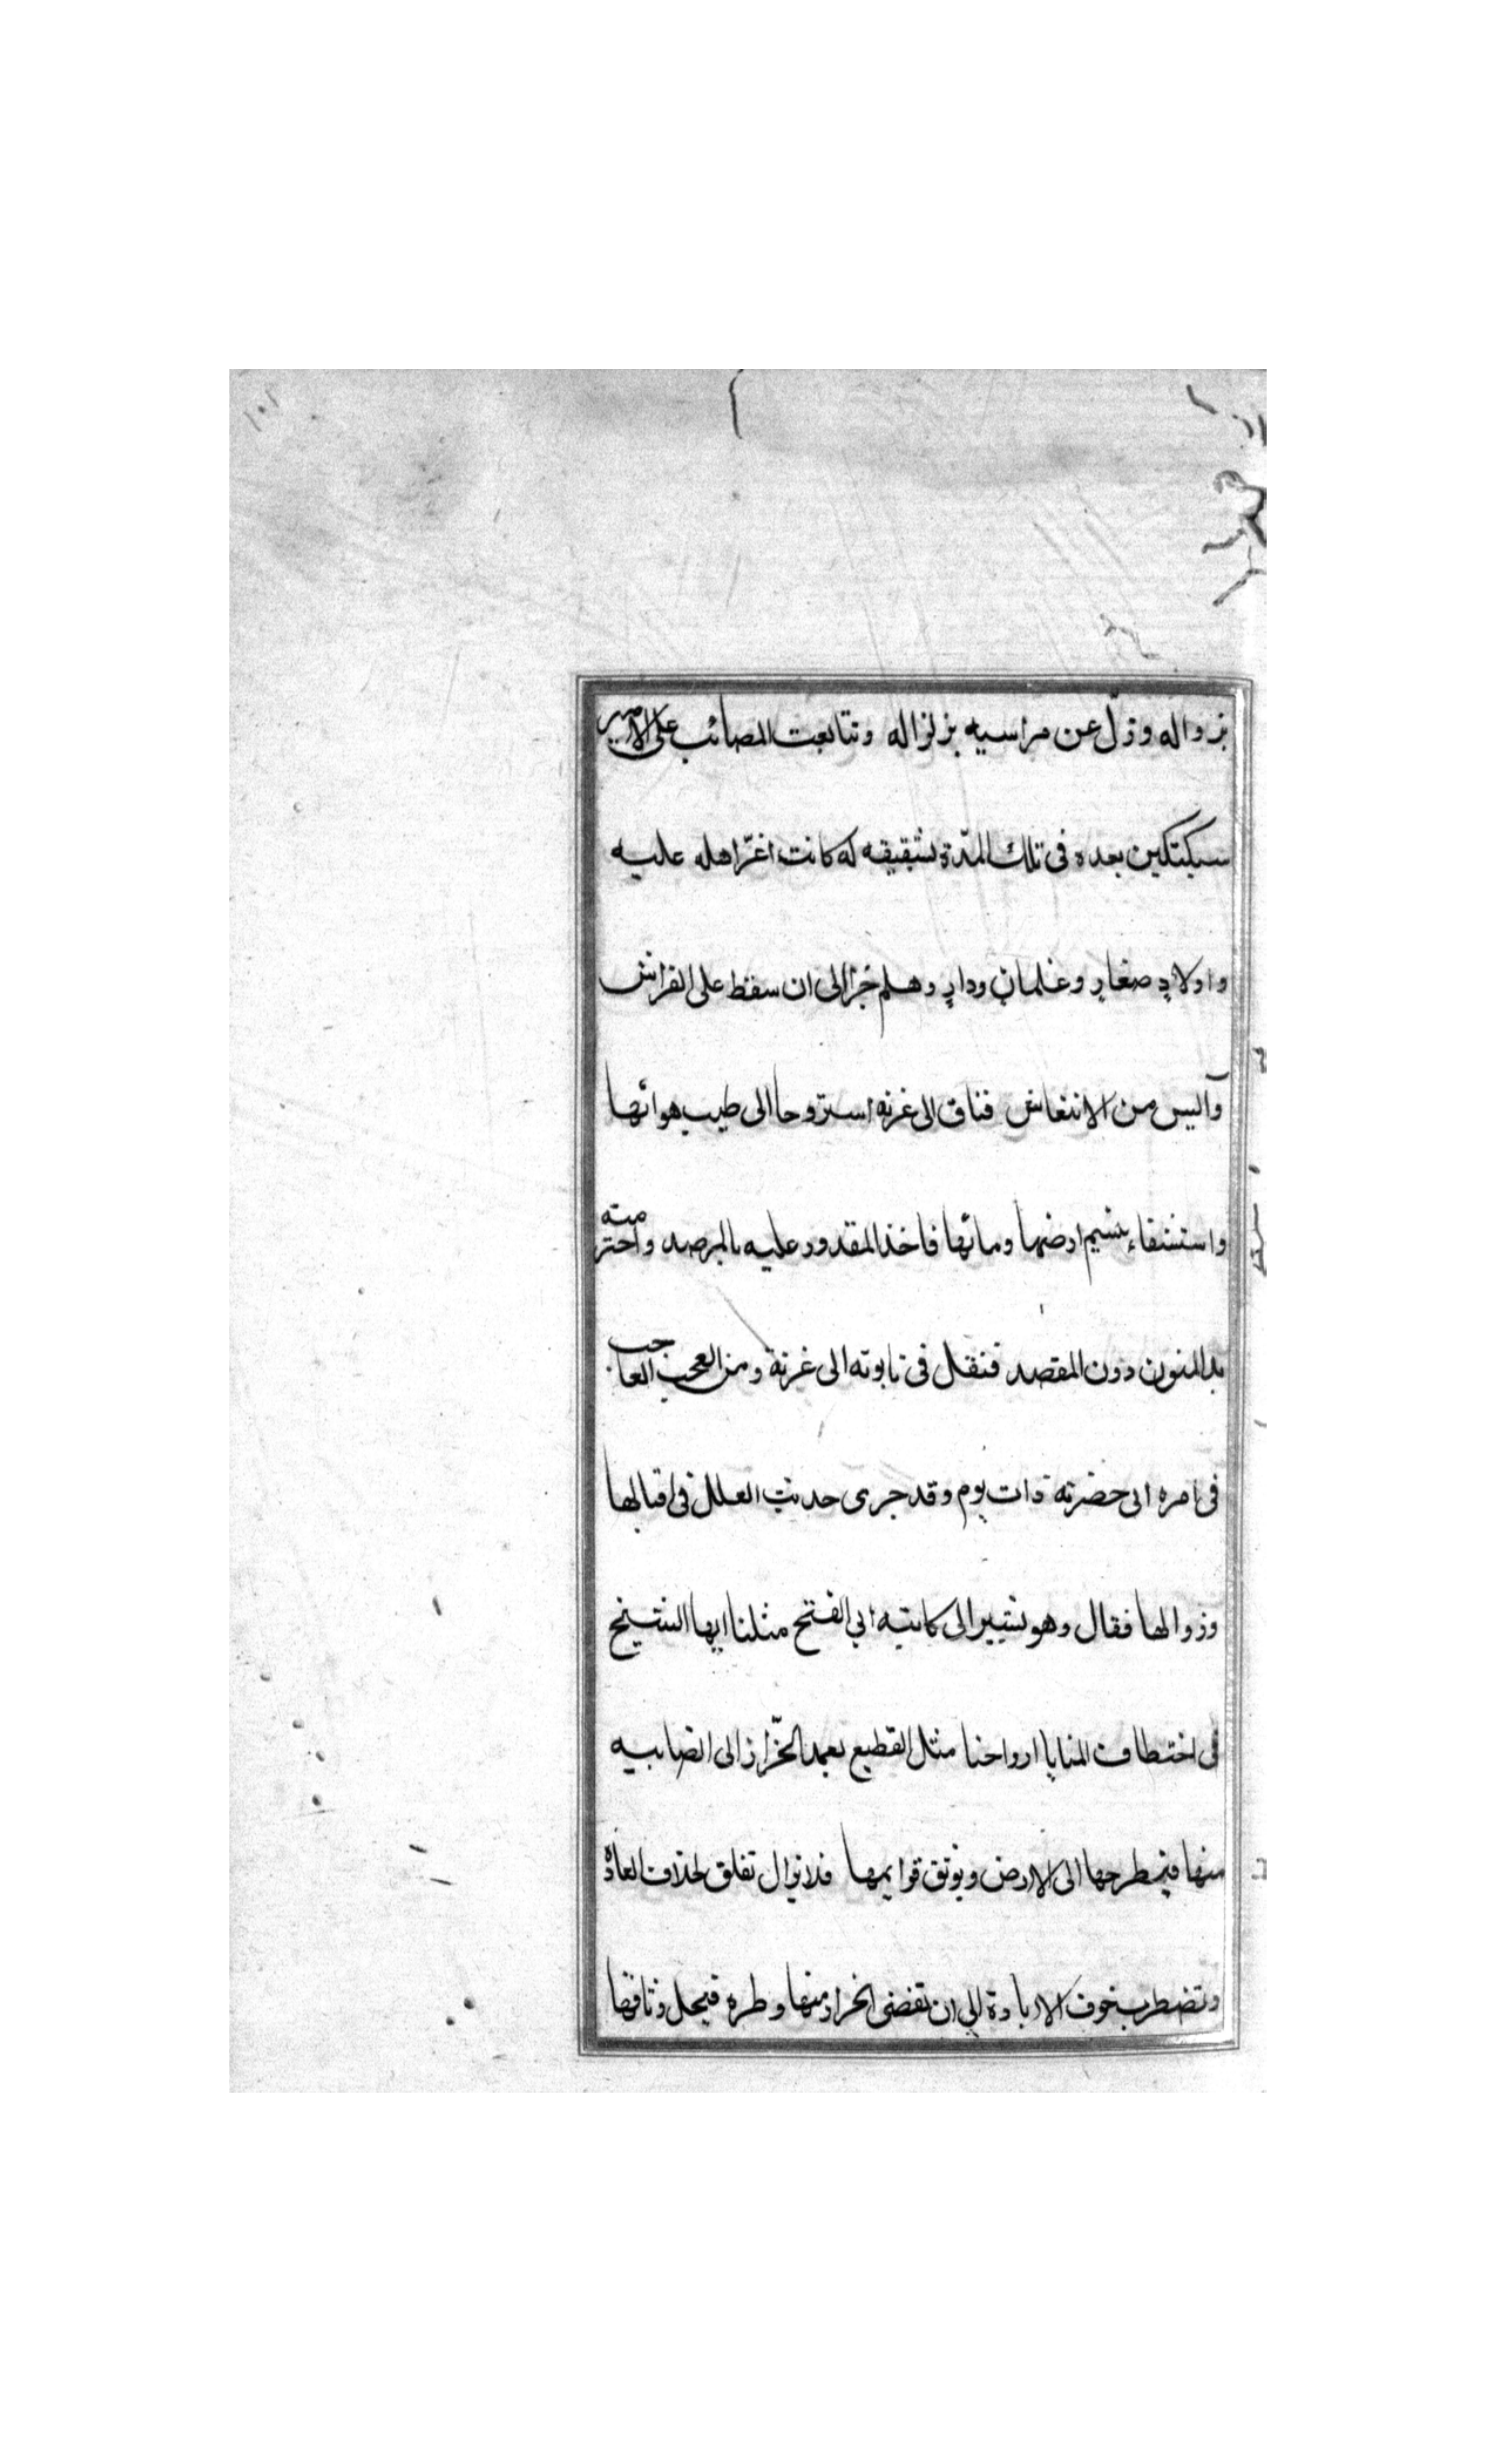 ١٠١
بزواله وزلّ عن مراسيه بزلزاله وتتابعت المصائب على الامير
سبكتكين بعده فى تلك المدّة بشقيقه له كانت اعزّ اهله عليه
واولادٍ صغارٍ وغلمانٍ ودارٍ وهلم جرا الى ان سقط على الفراش
وآليس من الانتعاش فتاق الى غزنه استروحا الى طيب هوائها
واستشفاء بنسيم ارضها ومائها فاخذ المقدور عليه بالمرصد واحترمته
يد المنون دون المقصد فنقل فى تابوته الى غزنة ومن العجب العاجب
فى امره انى حضرته ذات يوم وقد جرى حديث العلل فى اقبالها
وزوالها فقال وهو يشير الى كاتبه ابى الفتح مثلنا ايها الشيخ
فى اختطاف المنايا ارواحنا مثل القطيع يعمد الجزّار الى القضاىيه
منها فيطرحها الى الارض ويوثق قوايمها فلا تزال تقلق لخلاف العادة
وتضطرب خوف الابادة الى ان تقضى الجزار منها وطره فيحل وثاقها